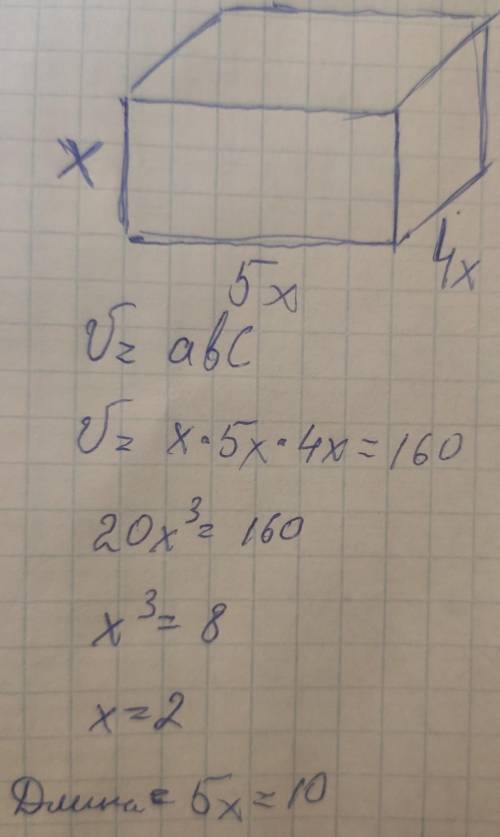 x
4x
5x
V= abc
V= x·5x·4x=160
20x³= 160
x³= 8
x=2
Длина= 5x=10